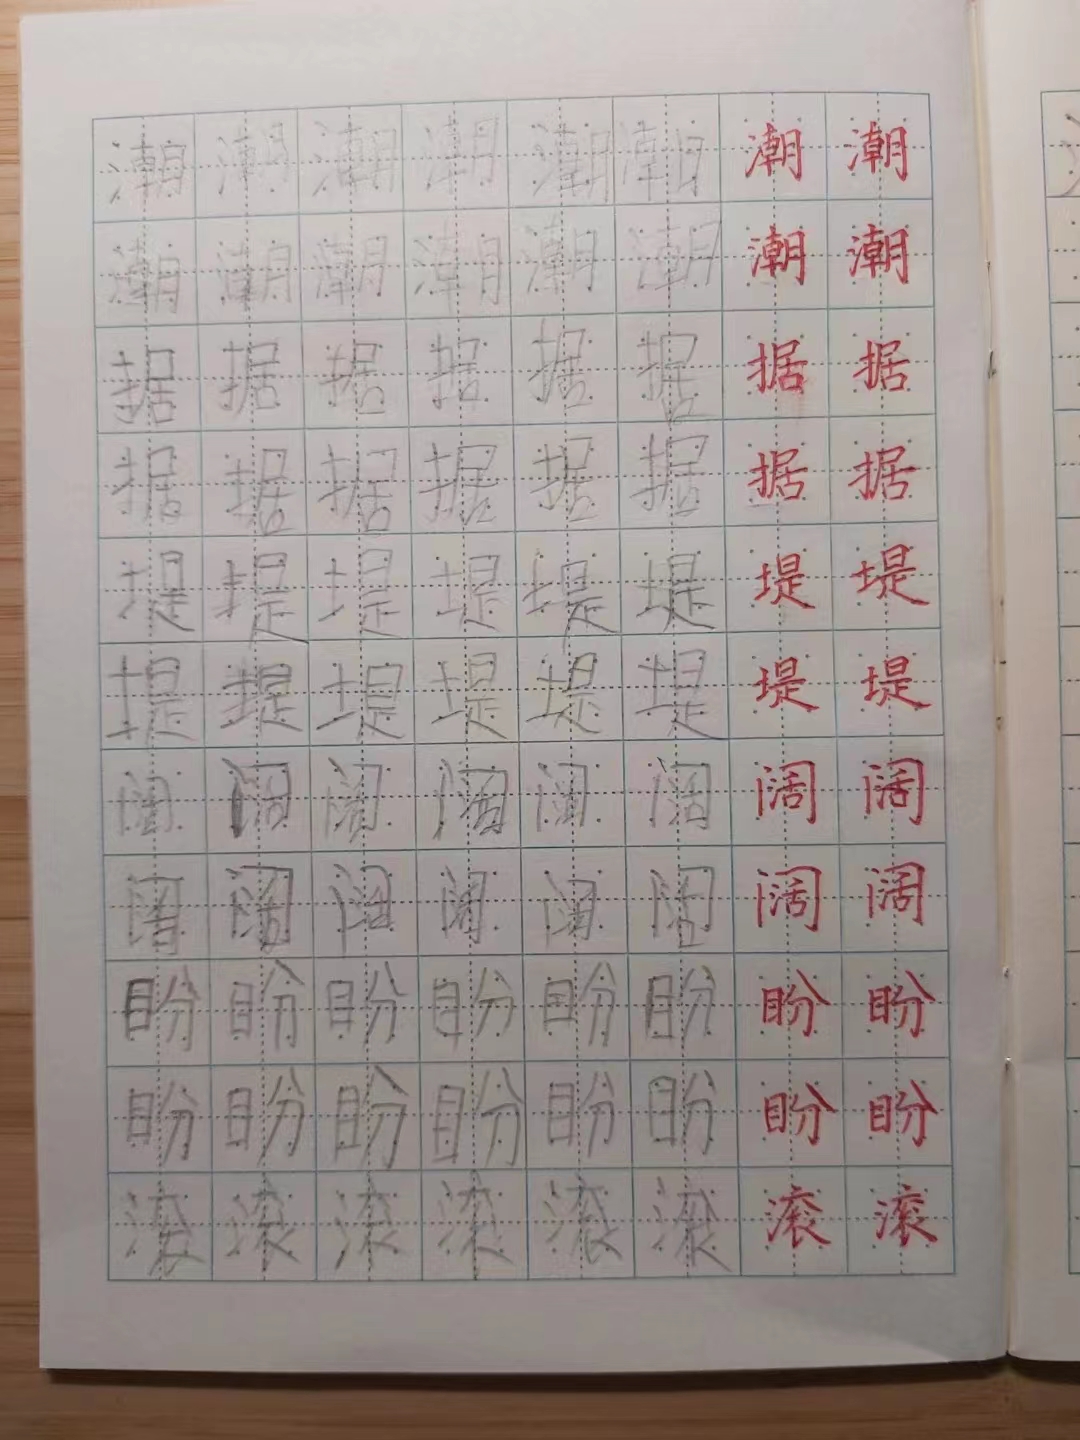 潮潮潮潮潮潮潮潮
潮潮潮潮潮潮潮潮
据据据据据据据据
据据据据据据据据
堤堤堤堤堤堤堤堤
堤堤堤堤堤堤堤堤
阔阔阔阔阔阔阔阔
阔阔阔阔阔阔阔阔
盼盼盼盼盼盼盼盼
盼盼盼盼盼盼盼盼
滚滚滚滚滚滚滚滚